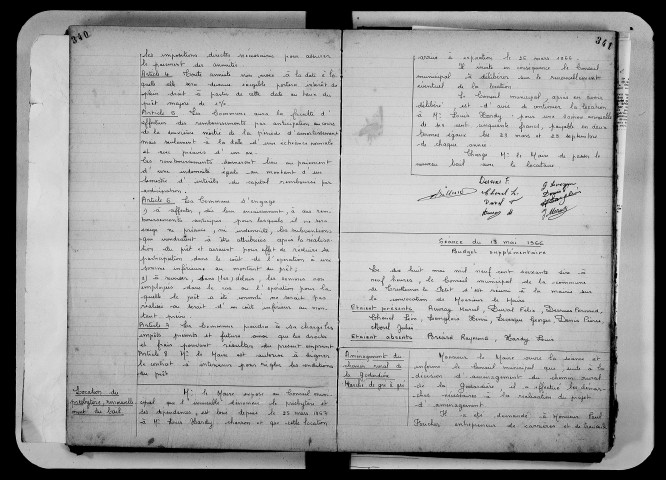 340
les impositions directes nécessaires pour assurer
le paiement des annuités
Article 4. Toute annuité non versée à la date à la
quelle elle sera devenue exigible portera intérêt de
plein droit à partir de cette date au taux du
prêt majoré de 1%.
Article 5. La Commune aura la faculté d'
effectuer des remboursements par anticipation au cours
de la dernière moitié de la période d'amortissement
mais seulement à la date d'une échéance normale
et avec préavis d'un
Ces remboursements donneront lieu au paiement
d'une indemnité égale au montant d'un
semestre d'intérêts du capital remboursé par
anticipation.
Article 6. La Commune s'engage
1) à affecter, dès leur encaissement, à des rem-
boursements anticipés pour lesquels il ne sera
exigé ni préavis, ni indemnité, les subventions
qui viendraient à être attribuées après la réalisa-
tion du prêt et auraient pour effet de réduire sa
participation dans le coût de l'opération à une
somme inférieure au montant du prêt ;
2) à reverser, dans les délais, les sommes non
employées dans le cas où l'opération pour la
quelle le prêt a été consenti ne serait pas
réalisée ou serait d'un coût inférieur au mon-
tant prévu.
Article 7. La Commune prendra à sa charge les
impôts présents et futurs ainsi que les droits
et frais pouvant résulter du présent emprunt
Article 8. Mr le Maire est autorisé à signer
le contrat à intervenir pour régler les conditions
du prêt
Location du
presbytère, renouvelle
ment du bail
Mr le Maire expose au Conseil muni-
cipal que l'immeuble dénommé le presbytère et
ses dépendances, est loué depuis le 25 mars 1957
à Mr Louis Hardy, charron et que cette location
341
arrive à expiration le 25 mars 1966.
Il invite en conséquence le Conseil
municipal à délibérer sur le renouvellement
éventuel de la location
Le Conseil municipal, après en avoir
délibéré, est d'avis de continuer la location
à Mr Louis Hardy, pour une somme annuelle
de six cent cinquante francs, payable en deux
termes égaux les 25 mars et 29 septembre
de chaque année
Charge Mr le Maire de passer le
nouveau bail avec le locataire
Séance du 18 mai 1966
Budget supplémentaire
Le dix huit mai mil neuf cent soixante six à
neuf heures, le Conseil municipal de la commune
de le Petit s'est réuni à la mairie sur
la convocation de Monsieur le Maire
Etaient présents
Etaient absents
Aménagement du
chemin rural de
la
Marché de gré à gré
Monsieur le Maire ouvre la séance et
informe le Conseil municipal que, suite à la
décision d'aménagement du chemin rural
de la il a effectué les démar-
ches nécessaires à la réalisation du projet
d'aménagement
Il a été demandé à Monsieur Paul
entrepreneur de carrières et de travaux